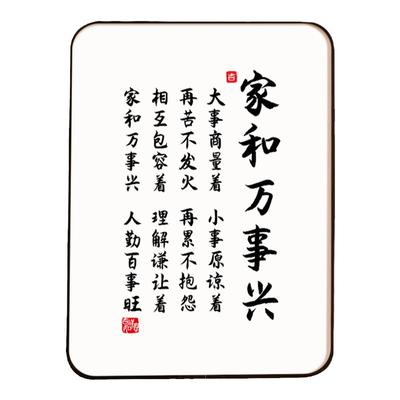 吉
家和万事兴
大事商量着 小事原谅着
再苦不发火 再累不抱怨
相互包容着 理解谦让着
家和万事兴 人勤百事旺